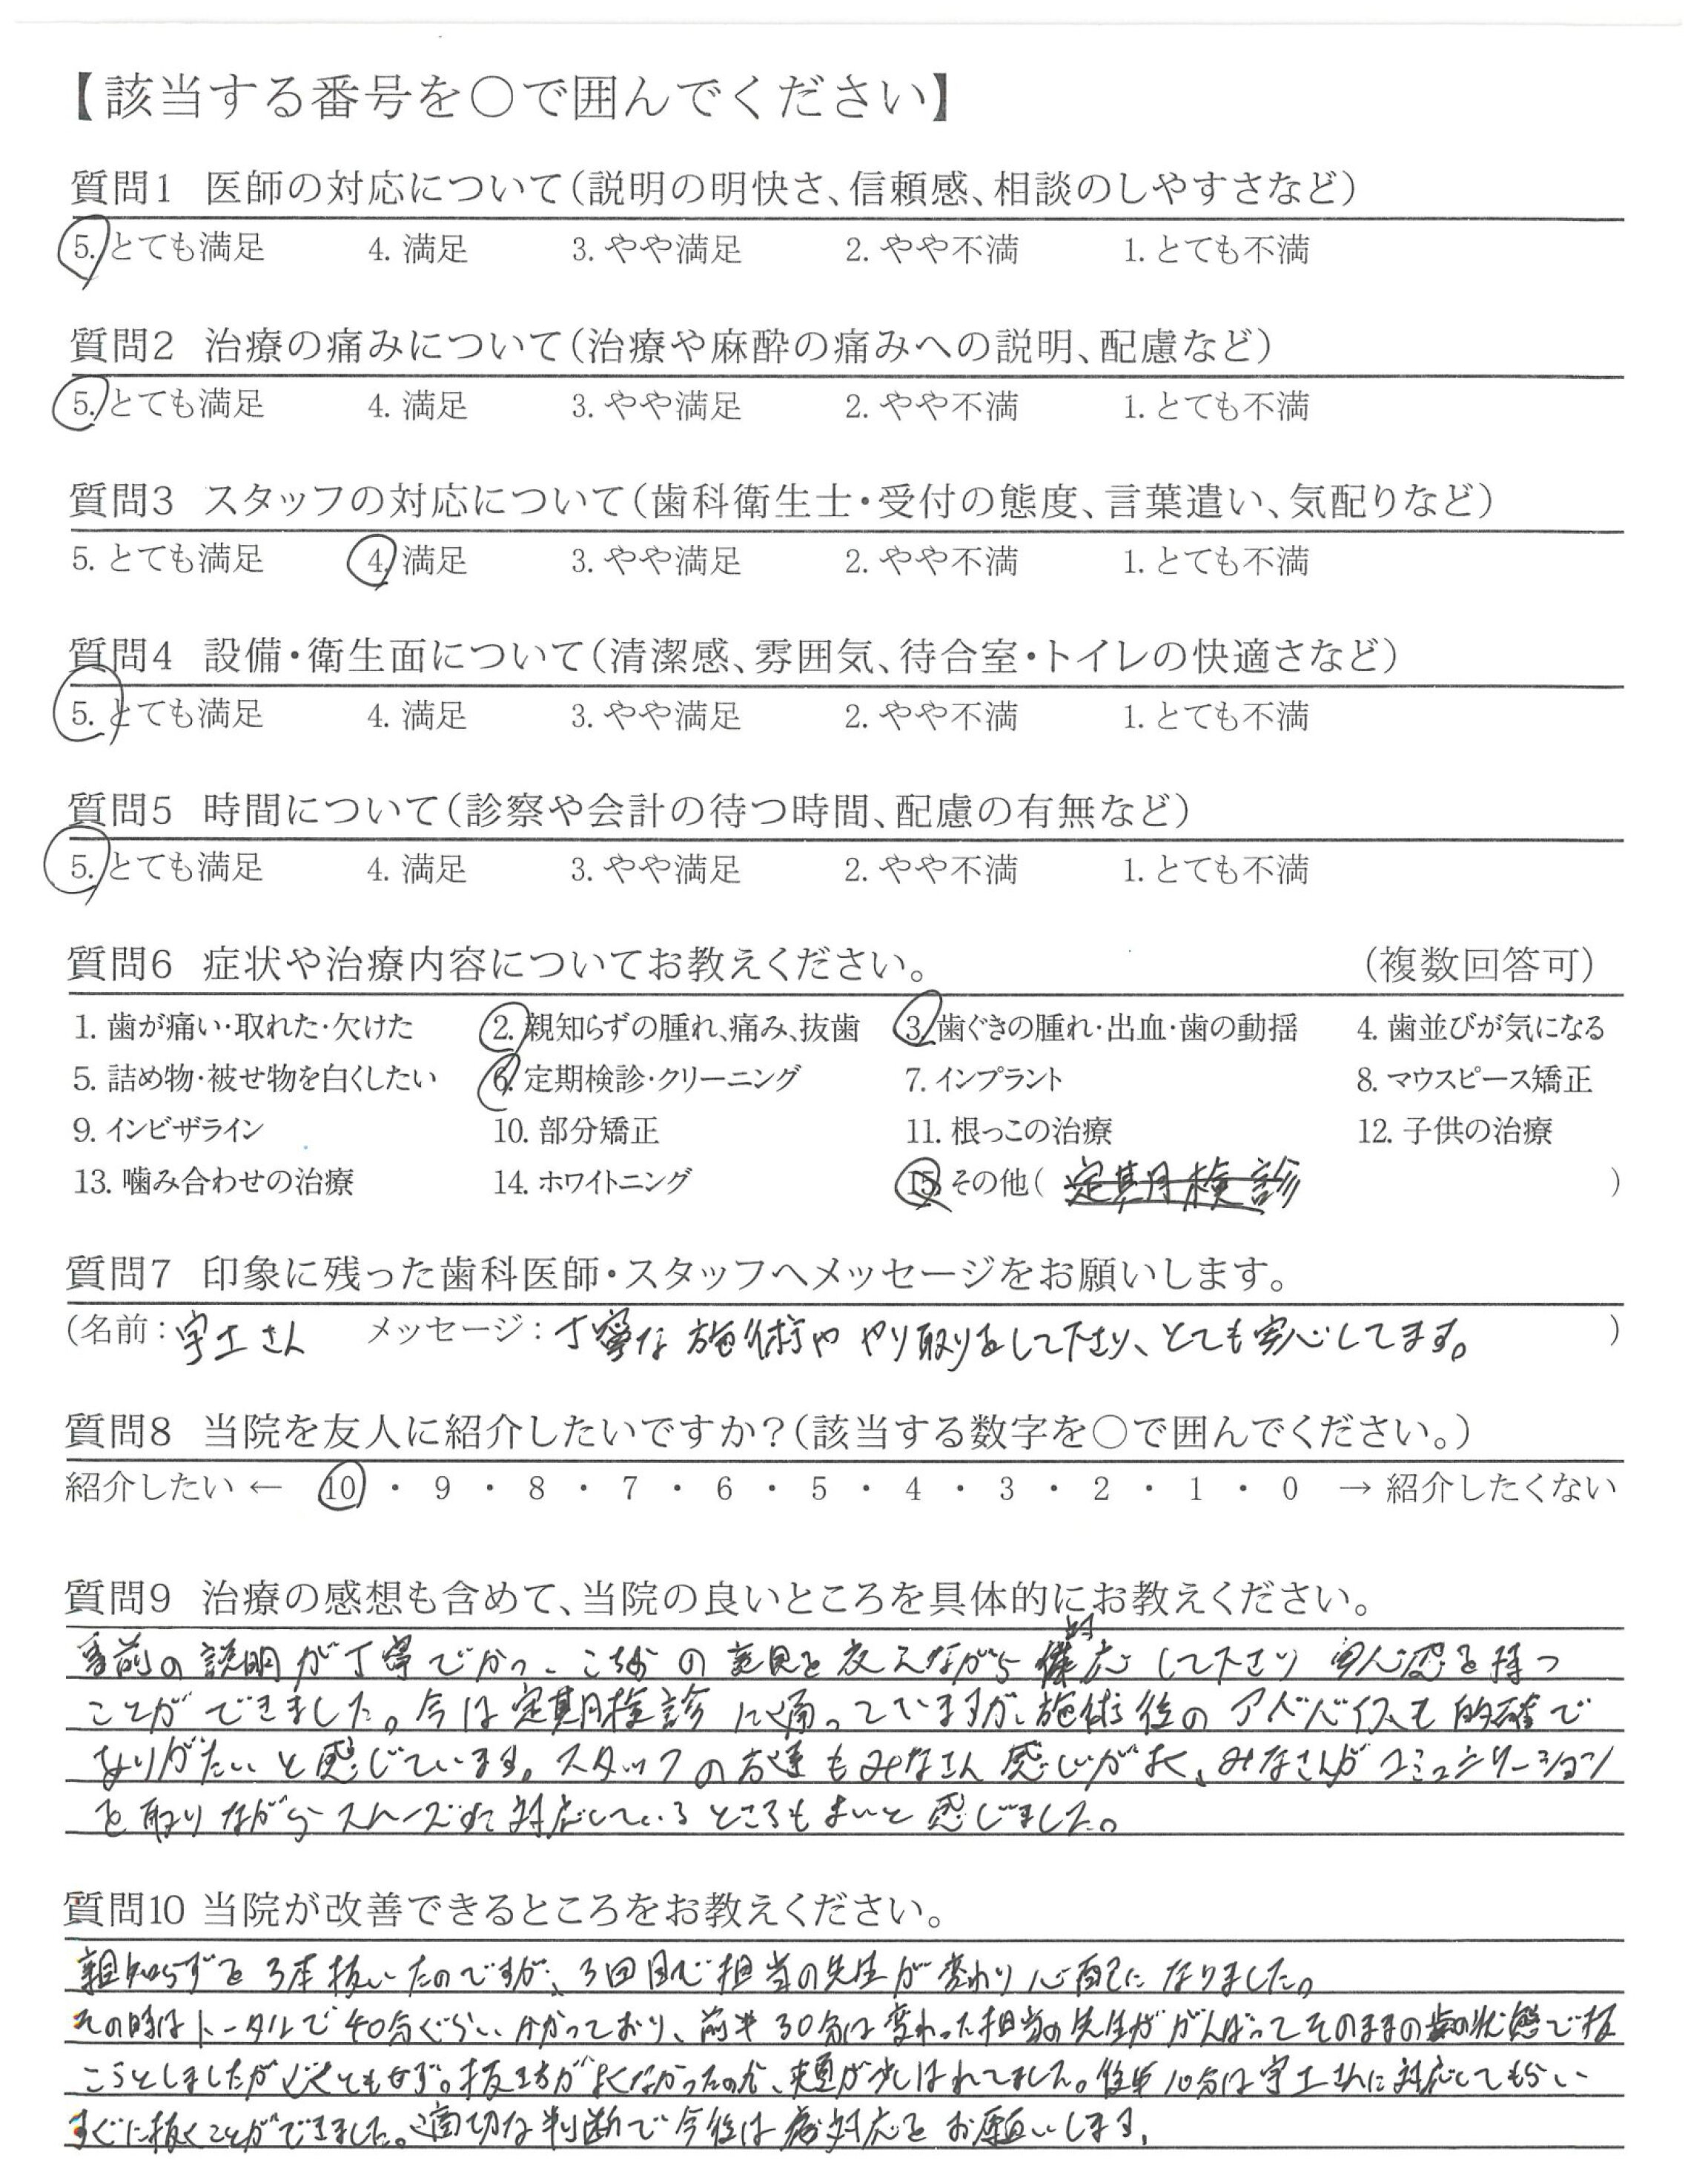 【該当する番号を○で囲んでください】
質問1 医師の対応について(説明の明快さ、信頼感、相談のしやすさなど)
5. とても満足 4. 満足 3. やや満足 2. やや不満 1. とても不満
質問2 治療の痛みについて(治療や麻酔の痛みへの説明、配慮など)
5. とても満足 4. 満足 3. やや満足 2. やや不満 1. とても不満
質問3 スタッフの対応について(歯科衛生士・受付の態度、言葉遣い、気配りなど)
5. とても満足 4. 満足 3. やや満足 2. やや不満 1. とても不満
質問4 設備・衛生面について(清潔感、雰囲気、待合室・トイレの快適さなど)
5. とても満足 4. 満足 3. やや満足 2. やや不満 1. とても不満
質問5 時間について(診察や会計の待つ時間、配慮の有無など)
5. とても満足 4. 満足 3. やや満足 2. やや不満 1. とても不満
質問6 症状や治療内容についてお教えください。 (複数回答可)
1. 歯が痛い・取れた・欠けた 2. 親知らずの腫れ、痛み、抜歯 3. 歯ぐきの腫れ・出血・歯の動揺 4. 歯並びが気になる
5. 詰め物・被せ物を白くしたい 6. 定期検診・クリーニング 7. インプラント 8. マウスピース矯正
9. インビザライン 10. 部分矯正 11. 根っこの治療 12. 子供の治療
13. 噛み合わせの治療 14. ホワイトニング 15. その他( 定期検診 )
質問7 印象に残った歯科医師・スタッフへメッセージをお願いします。
(名前: 宇土さん メッセージ: 丁寧な施術ややり取りをして下さり、とても安心してます。 )
質問8 当院を友人に紹介したいですか?(該当する数字を○で囲んでください。)
紹介したい ← 10 ・ 9 ・ 8 ・ 7 ・ 6 ・ 5 ・ 4 ・ 3 ・ 2 ・ 1 ・ 0 → 紹介したくない
質問9 治療の感想も含めて、当院の良いところを具体的にお教えください。
事前の説明が丁寧でかつ、こちらの意見を交えながら対応して下さり安心感を持つ
ことができました。今は定期検診に通っていますが、施術後のアドバイスも的確で
ありがたいと感じています。スタッフの方達もみなさん感じがよく、みなさんがコミュニケーション
を取りながらスムーズに対応しているところもよいと感じました。
質問10 当院が改善できるところをお教えください。
親知らずを3本抜いたのですが、3回目で担当の先生が変わり心配になりました。
その時はトータルで40分ぐらいかかっており、前半30分は変わった担当の先生ががんばってそのままの歯の状態で抜
こうとしましたがびくともせず。抜き方がよくなかったのか、頬が少しはれてました。後半10分は宇土さんに対応してもらい
すぐに抜くことができました。適切な判断で今後は対応をお願いします。